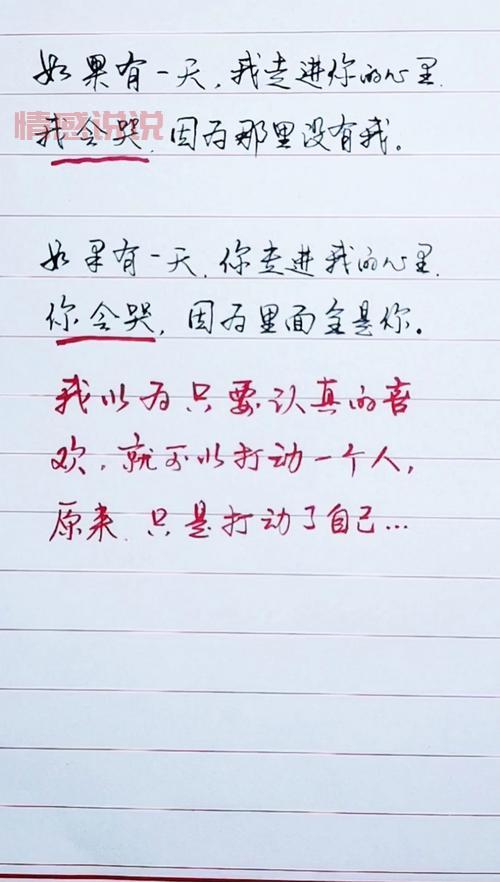 如果有一天,我走进你的心里.
情感说说
我会哭,因为那里没有我。
如果有一天,你走进我的心里.
你会哭,因为里面全是你。
我以为只要认真的喜
欢,就可以打动一个人,
原来,只是打动了自己...